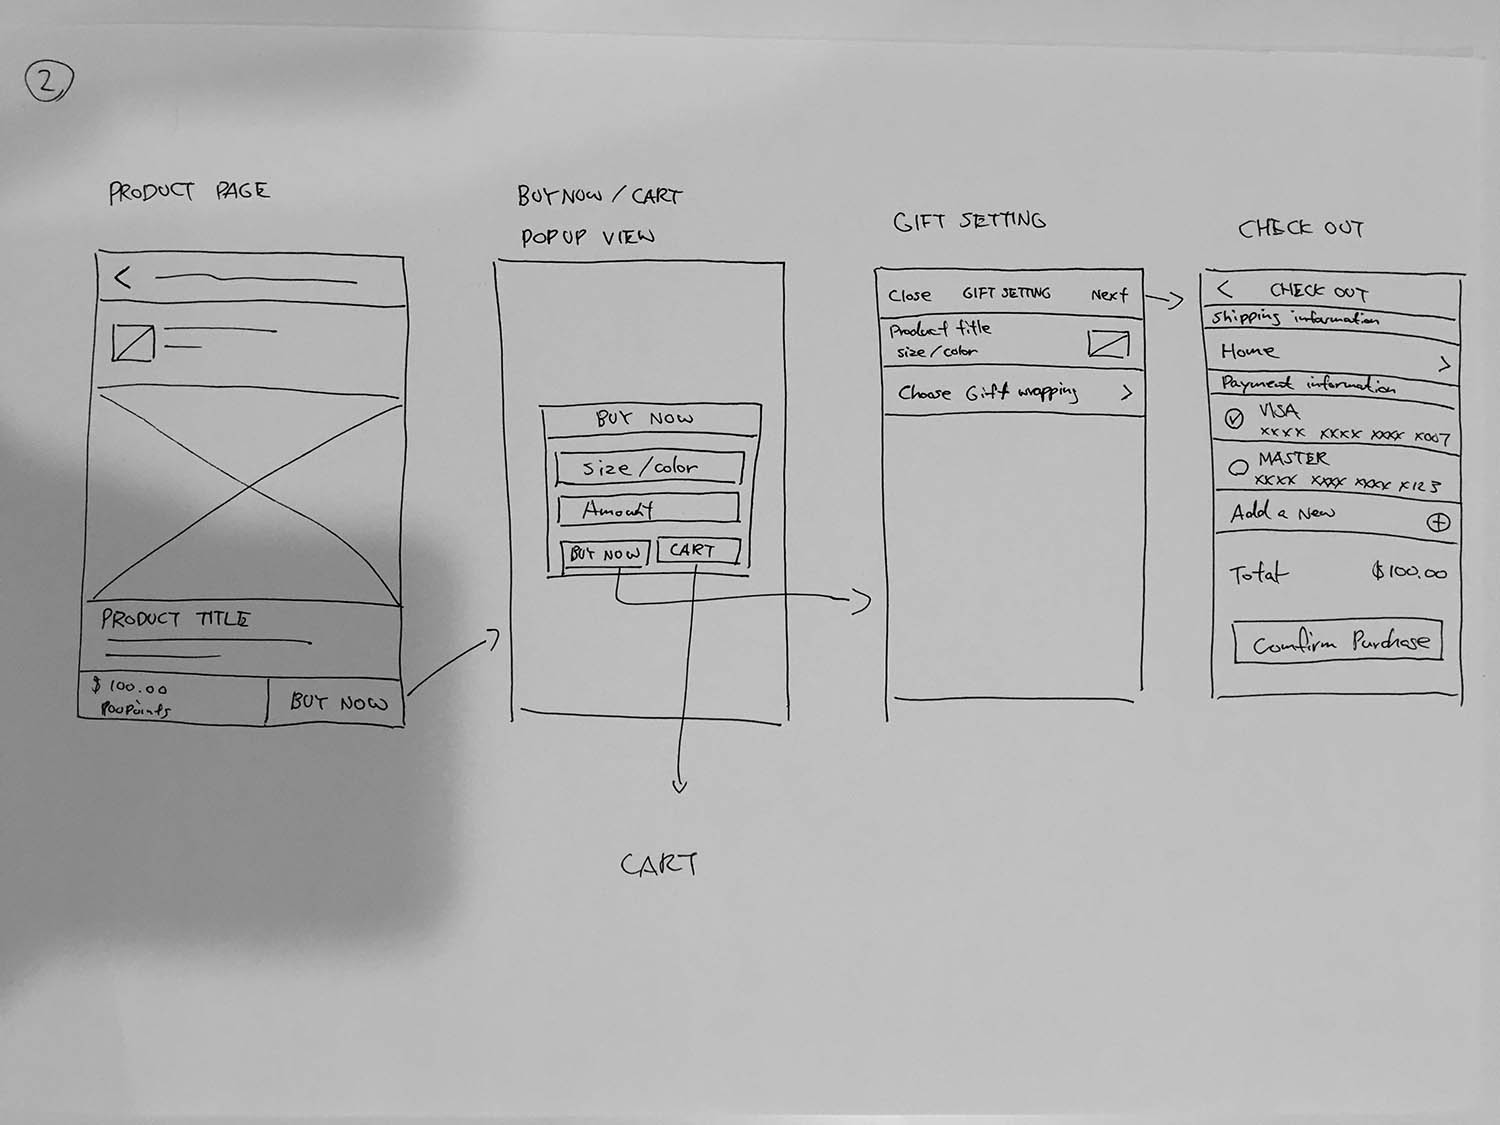 2
PRODUCT PAGE
PRODUCT TITLE
$100.00
BUY NOW
BUY NOW / CART
POPUP VIEW
BUY NOW
Size/color
Amount
BUY NOW
CART
CART
GIFT SETTING
Close GIFT SETTING Next
Product title
size/color
Choose Gift wrapping
CHECK OUT
CHECK OUT
Shipping information
Home
Payment information
VISA
XXXX XXXX XXXX X007
MASTER
XXXX XXXX XXXX X123
Add a New
Total $100.00
Comfirm Purchase